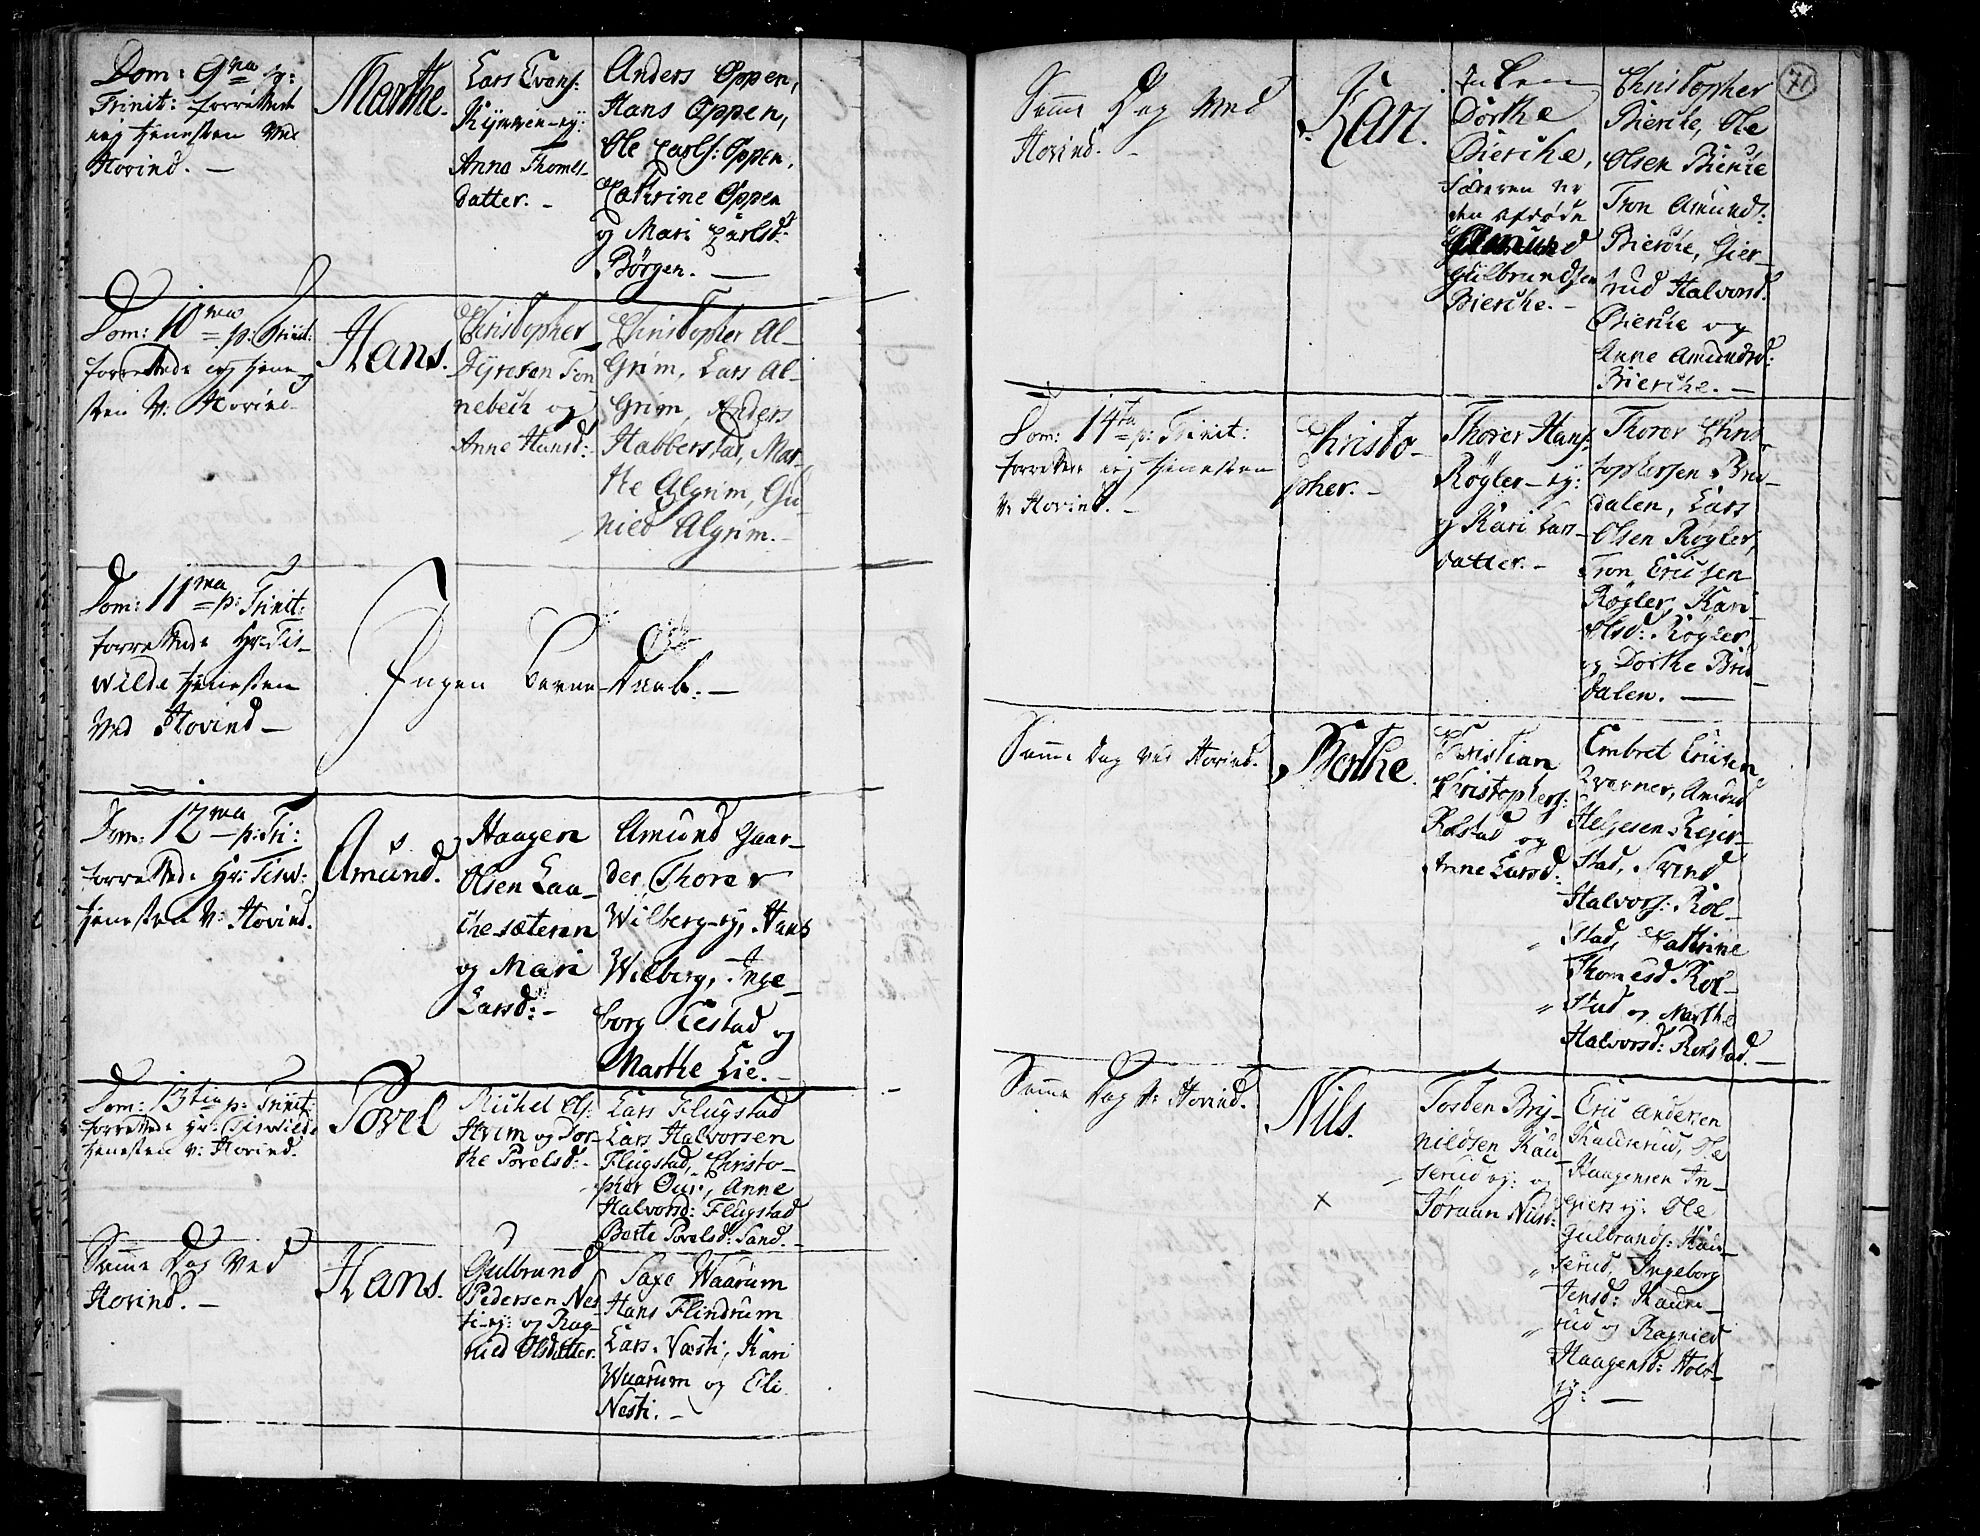 Dom: 9na p:
Trinit: forrettede
ieg tienesten ved
Hovind. –
Marthe.
Lars Evens:
Kynnen-ej:
Anna Thomes-
datter. –
Anders Oppen,
Hans Oppen,
Ole Carls: Oppen,
Cathrine Oppen
og Mari Carlsd:
Börgen. –
Dom: 10ma p. Trinit:
forrettede ieg tiene-
sten V: Hovind
Hans.
Christopher
Dyresen
nebech og
Anne Hansd:
Christopher Al-
grim, Lars Al-
grim, Anders
Habberstad, Mar-
the Algrim, Gu-
nild Algrim. –
Dom: 11ma p: Trinit:
forrettede Hr: Tis-
wilde tienesten
ved Hovind –
Ingen Barne-Daab. –
Dom: 12ma p: Tri:
forrettede Hr: Tisw:
tienesten V: Hovind.
Amund.
Haagen
Olsen Laa-
che-sæteren
og Mari
Larsd: –
Amund Gaar-
der, Thorer
Wilberg-ej, Hans
Wilberg, Inge-
borg Lestad og
Marthe Lie. –
Dom: 13tia p: Trinit:
forrettede Hr: Tiswilde
tienesten v: Hovind.
Povel
Michel Ols:
Hvim og Dor-
the Povelsd: –
Lars Flugstad
Lars Halvorsen
Flugstad, Christo-
pher Our, Anne
Halvorsd: Flugstad
Berte Povelsd: Sand. –
Samme Dag ved
Hovind. –
Hans.
Gulbrand
Pedersen Nes-
ti-ej: og Rag-
nild Olsdatter.
Saxe Waarum
Hans Flindrum
Lars Næsti, Kari
Waarum og Eli
Nesti. –
71
Samme Dag ved
Hovind. –
Kari.
Dorthe
Bierche,
Faderen er
den afdöde
Gulbrandsen
Bierche. –
Christopher
Bierche, Ole
Olsen Bierche
Tron Amunds:
Bierche, Gier-
trud Halvorsd:
Bierche og
Anne Amundsd:
Bierche. –
Dom: 14ta p: Trinit:
forrettede ieg tienesten
V: Hovind. –
Christo-
pher. –
Thorer Hans:
Røgler-ej:
og Kari Lars-
datter. –
Thorer Chris-
tophersen Bru-
dalen, Lars
Olsen Røgler,
Tron Ericsen
Røgler, Kari
Olsd: Røgler
og Dorthe Bru-
dalen. –
Samme Dag ved Hovind.
Berthe.
Christian
Christophers:
Rolstad og
Anne Larsd:
Embret Ericsen
Qverner, Amund
Helgesen Kejer-
stad, Svend
Halvors: Rol-
stad, Cathrine
Thomesd: Rol-
stad og Marthe
Halvorsd: Rolstad. –
Samme Dag V: Hovind.
Nils.
x
Tosten Bry-
nildsen Kau-
serud ej: og
Jöraan Nilsd:
Eric Andersen
Kauserud, Ole
Haagensen In-
giers ej: Ole
Gulbrands: Kau-
serud, Ingeborg
Jensd: Kause-
rud og Ragnild
Haagensd: Holt-
ej: –